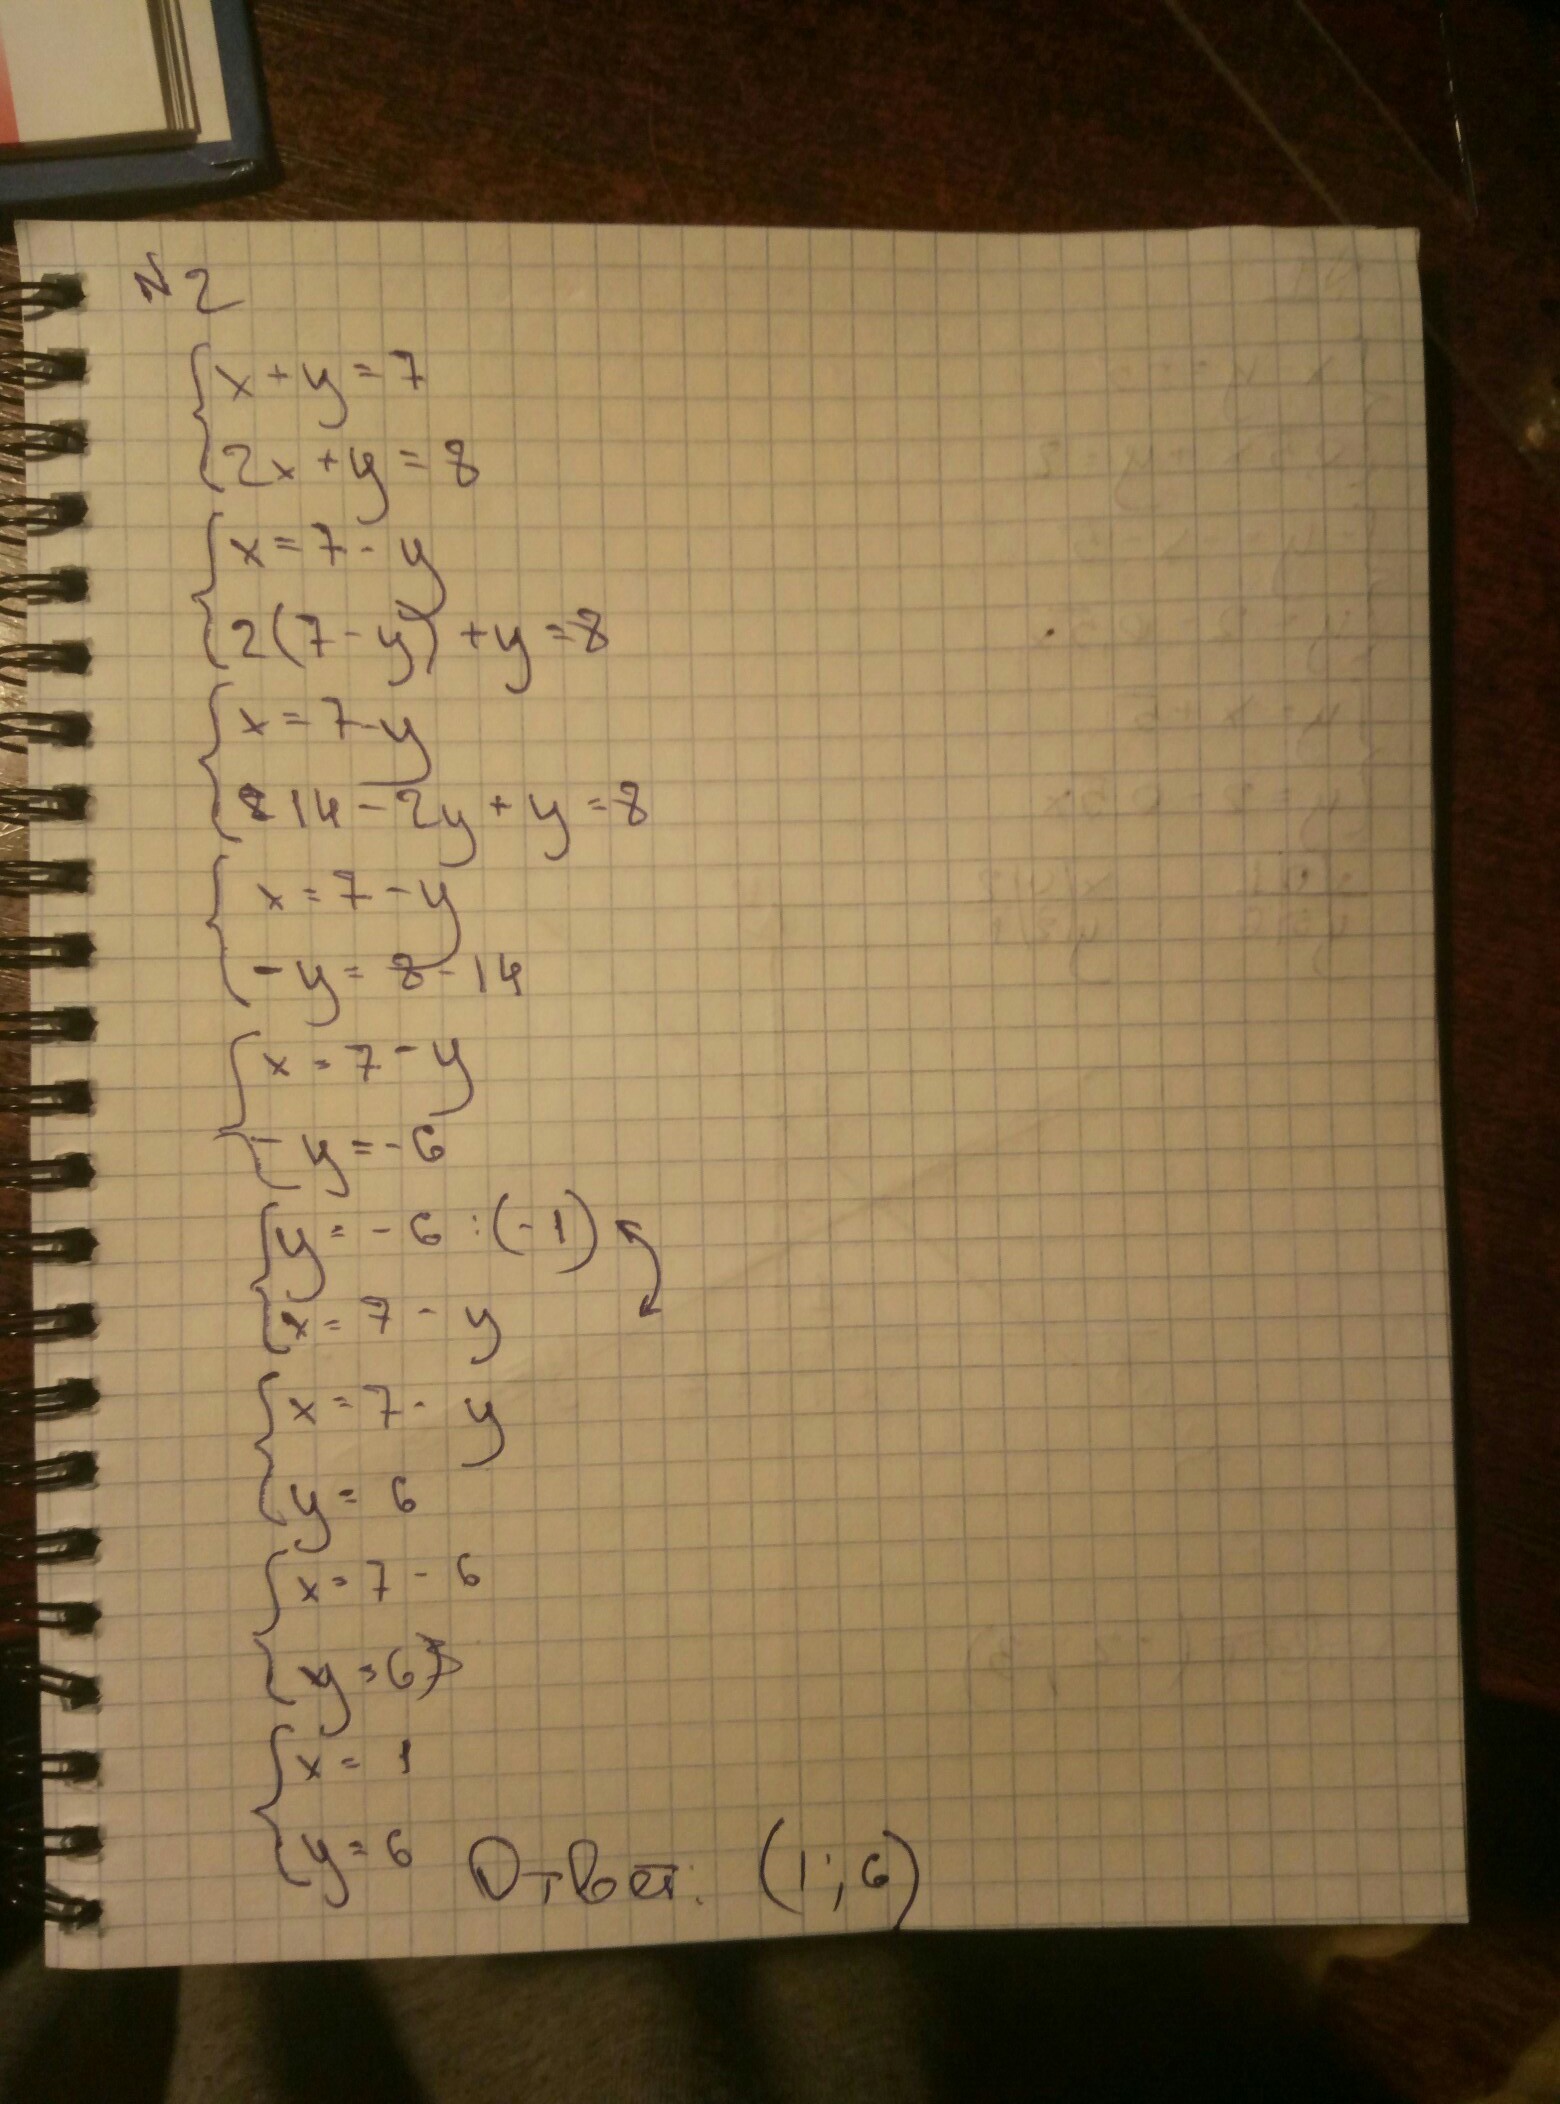 №2
x+y=7
2x+y=8
x=7-y
2(7-y)+y=8
x=7-y
14-2y+y=8
x=7-y
-y=8-14
x=7-y
-y=-6
y=-6:(-1)
x=7-y
x=7-y
y=6
x=7-6
y=6
x=1
y=6 Ответ: (1;6)